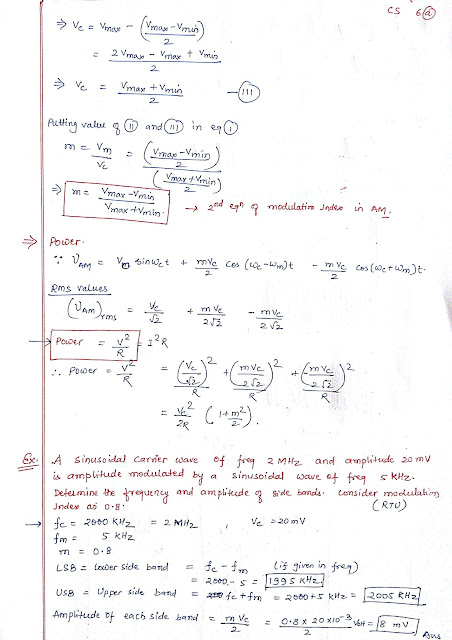 CS 6(a)
⇒ Vc = Vmax − (Vmax−Vmin)/2
= (2Vmax − Vmax + Vmin)/2
⇒ Vc = (Vmax+Vmin)/2 —(III)
Putting value of (II) and (III) in eq (I)
m = Vm/Vc = ((Vmax−Vmin)/2)/((Vmax+Vmin)/2)
⇒ m = (Vmax−Vmin)/(Vmax+Vmin) → 2nd eqn of modulation Index in AM.
⇒ Power.
∵ VAM = Vc sinωct + mVc/2 cos(ωc−ωm)t − mVc/2 cos(ωc+ωm)t.
Rms values
(VAM)rms = Vc/√2 + mVc/2√2 − mVc/2√2
→ Power = V²/R = I²R
∴ Power = V²/R = (Vc/√2)²/R + (mVc/2√2)²/R + (mVc/2√2)²/R
= Vc²/2R (1+m²/2).
Ex. A sinusoidal carrier wave of freq 2 MHz and amplitude 20 mV
is amplitude modulated by a sinusoidal wave of freq 5 kHz.
Determine the frequency and amplitude of side bands. Consider modulation
Index as 0.8. (RTU)
→ fc = 2000 KHz = 2 MHz , Vc = 20 mV
fm = 5 kHz
m = 0.8
LSB = lower side band = fc − fm (if given in freq)
= 2000 − 5 = 1995 KHz
USB = Upper side band = fc + fm = 2000+5 KHz = 2005 KHz
Amplitude of each side band = mVc/2 = (0.8 × 20×10⁻³)/2 Volt = 8 mV
Ans